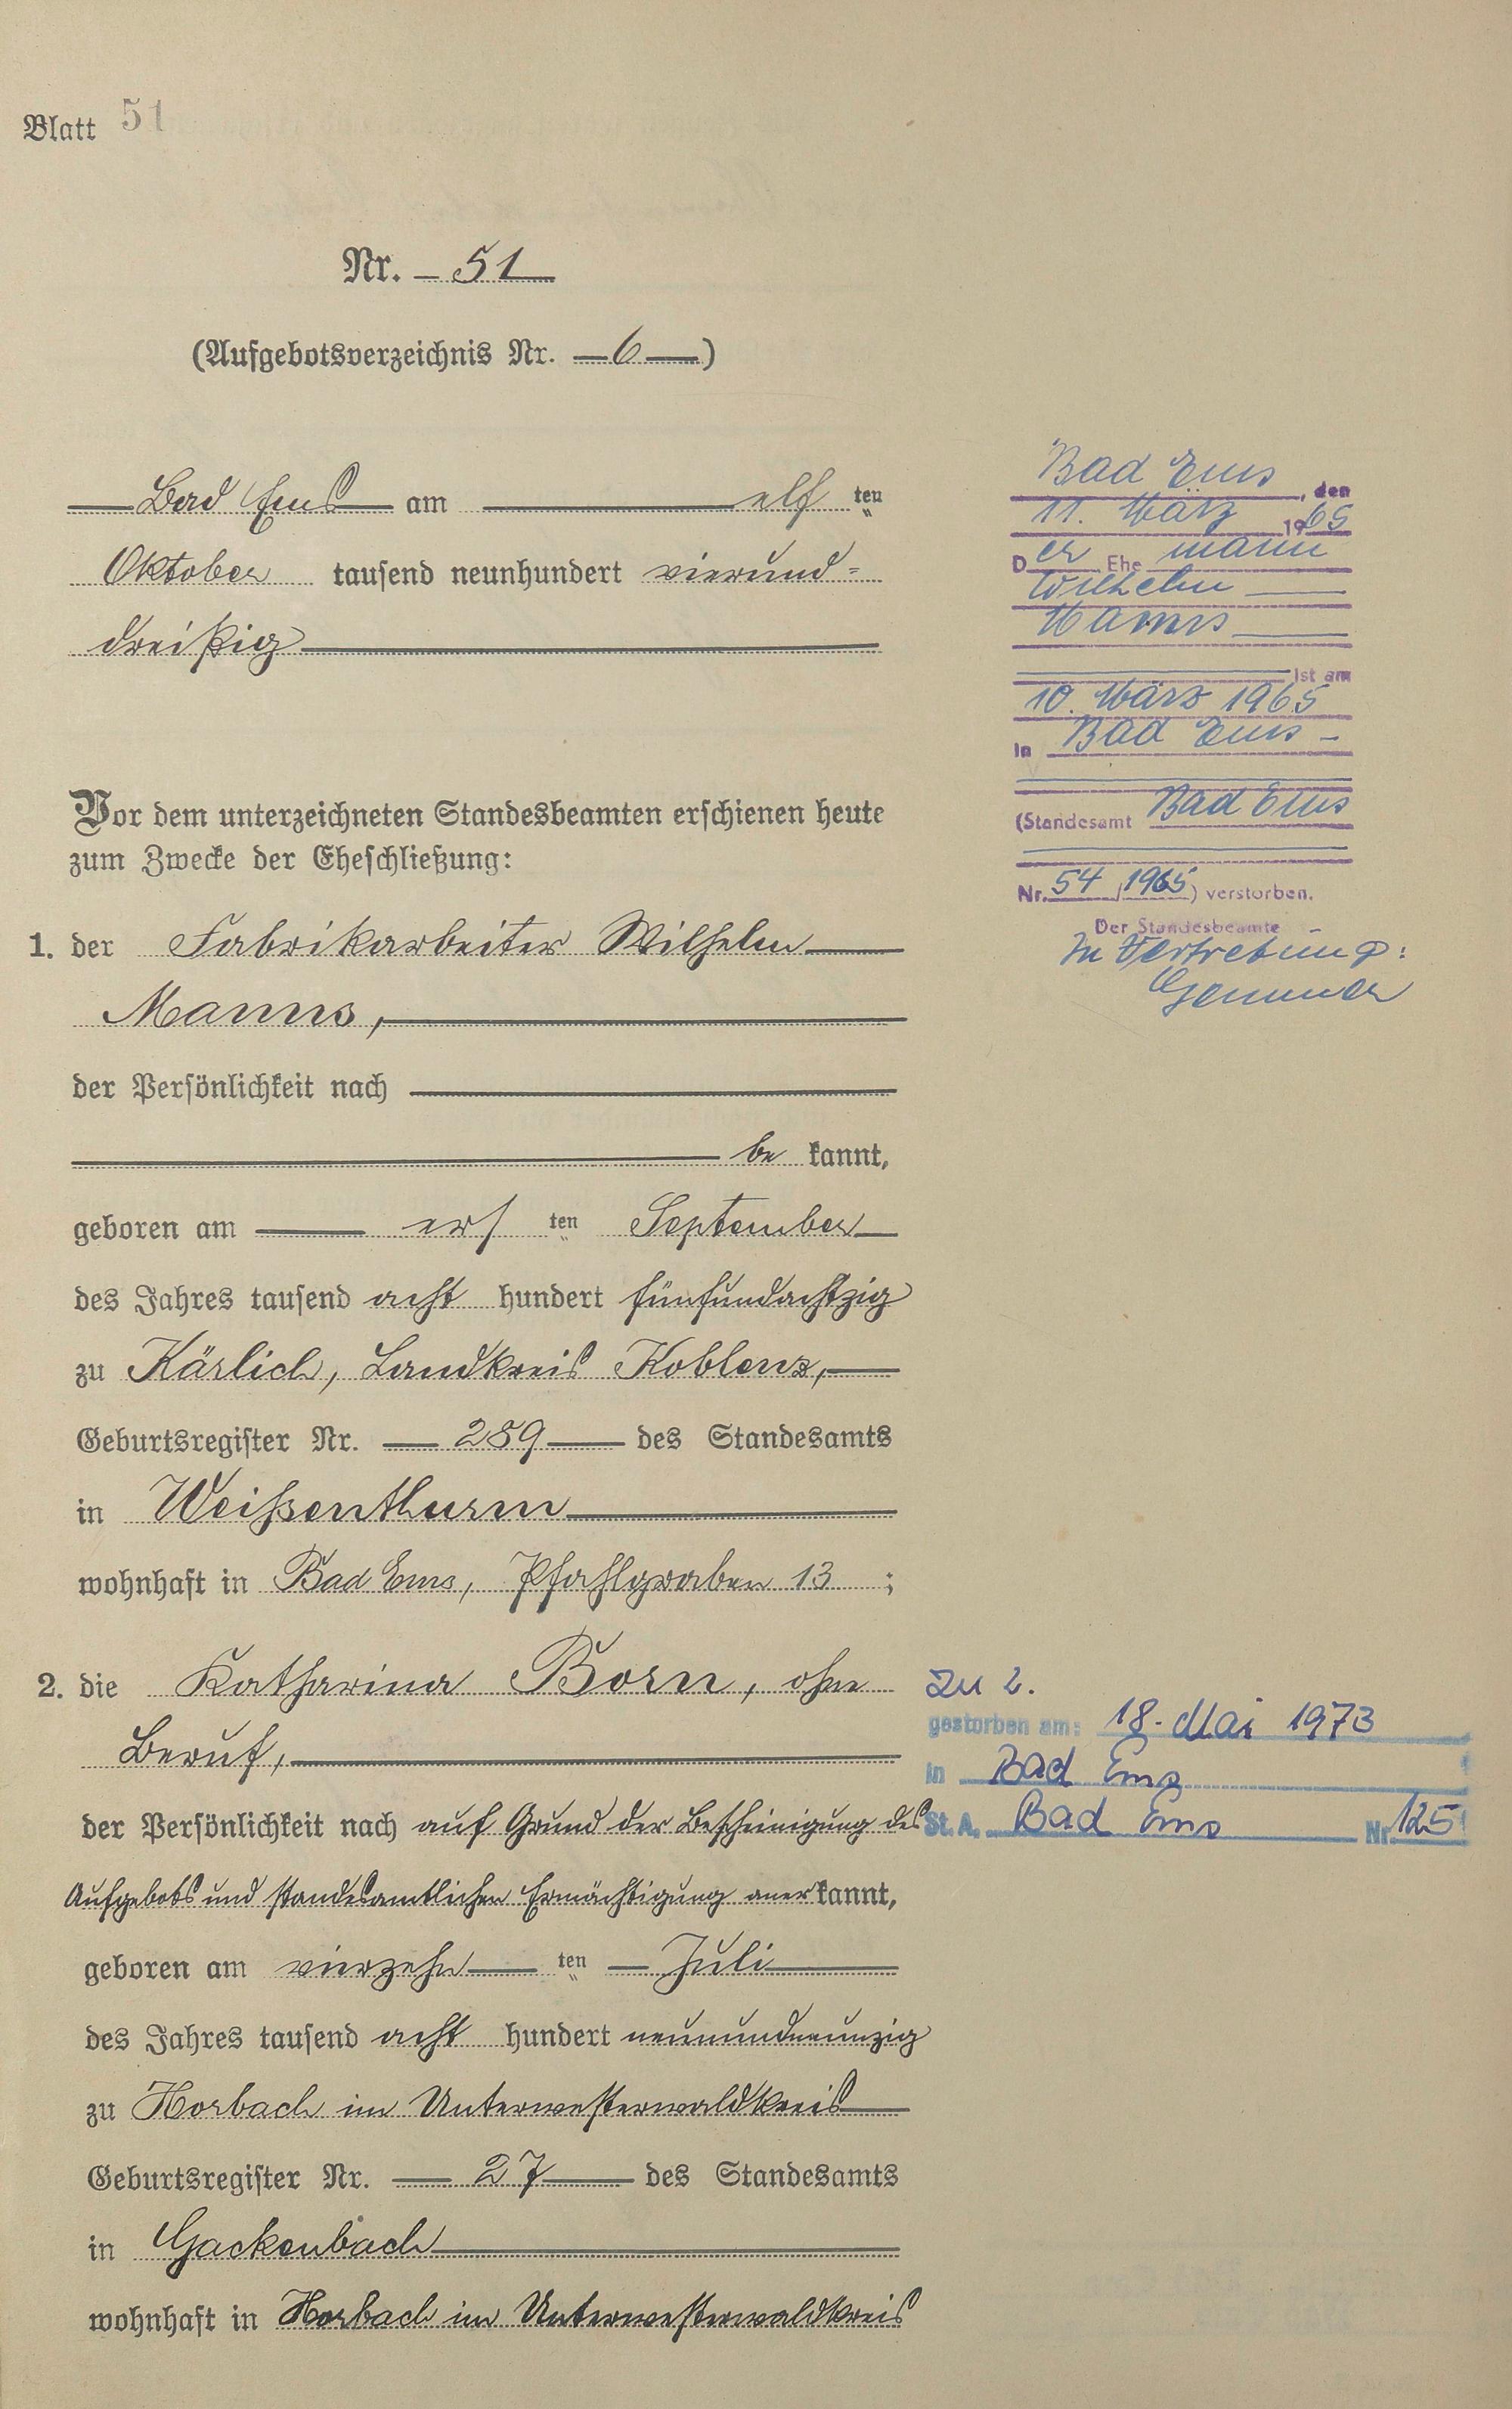 Blatt 51
Nr. 51
(Aufgebotsverzeichnis Nr. 6)
Bad Ems am elf ten
Oktober tausend neunhundert vierund=
dreißig
Vor dem unterzeichneten Standesbeamten erschienen heute
zum Zwecke der Eheschließung:
1. der Fabrikarbeiter Wilhelm
Manns,
der Persönlichkeit nach
be kannt,
geboren am ers ten September
des Jahres tausend acht hundert fünfundachtzig
zu Kärlich, Landkreis Koblenz,
Geburtsregister Nr. 259 des Standesamts
in Weißenthurm
wohnhaft in Bad Ems, Pfahlgraben 13 ;
2. die Katharina Born, ohne
Beruf,
der Persönlichkeit nach auf Grund der Bescheinigung des
Aufgebots und standesamtlichen Ermächtigung aner kannt,
geboren am vierzehn ten Juli
des Jahres tausend acht hundert neunundneunzig
zu Horbach im Unterwesterwaldkreis
Geburtsregister Nr. 27 des Standesamts
in Gackenbach
wohnhaft in Horbach im Unterwesterwaldkreis
Bad Ems, den
11. März 1965
Der Ehemann
Wilhelm
Manns
ist am
10. März 1965
in Bad Ems -
(Standesamt Bad Ems
Nr. 54/1965) verstorben.
Der Standesbeamte
In Vertretung:
Zu 2.
gestorben am: 18. Mai 1973
in Bad Ems
St. A. Bad Ems Nr. 125